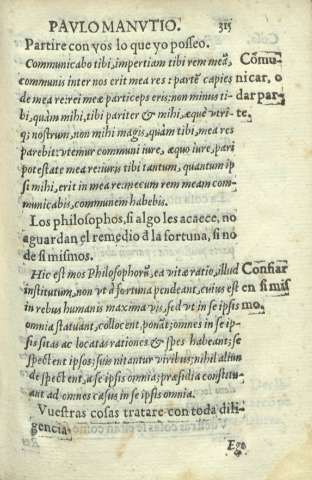 PAVLO MANVTIO. 315
Partire con vos lo que yo posseo.
Communicabo tibi, impertiam tibi rem meã,
communis inter nos erit mea res: partẽ capies
de mea re: rei meæ particeps eris: non minus ti-
bi, quàm mihi, tibi pariter & mihi, æque vtri-
q; nostrum, non mihi magis, quàm tibi, mea res
parebit: vtemur communi iure, æquo iure, pari
potestate mea re: iuris tibi tantum, quantum ip
si mihi, erit in mea re: mecum rem meam com-
municabis, communem habebis.
Cõmu-
nicar, o
dar par-
te.
Los philosophos, si algo les acaece, no
aguardan el remedio à la fortuna, si no
de si mismos.
Hic est mos Philosophorũ, ea vitæ ratio, illud
institutum, non vt à fortuna pendeant, cuius est
in rebus humanis maxima vis, sed vt in se ipsis
omnia statuant, collocent, ponãt; omnes in se ip-
sis sitas ac locatas rationes & spes habeant; se
spectent ipsos; suis nitantur viribus; nihil aliun
de spectent, a se ipsis omnia; præsidia constitu-
ant ad omnes casus in se ipsis omnia.
Confiar
en si mis
mo.
Vuestras cosas tratare con toda dili-
gencia.
Ego